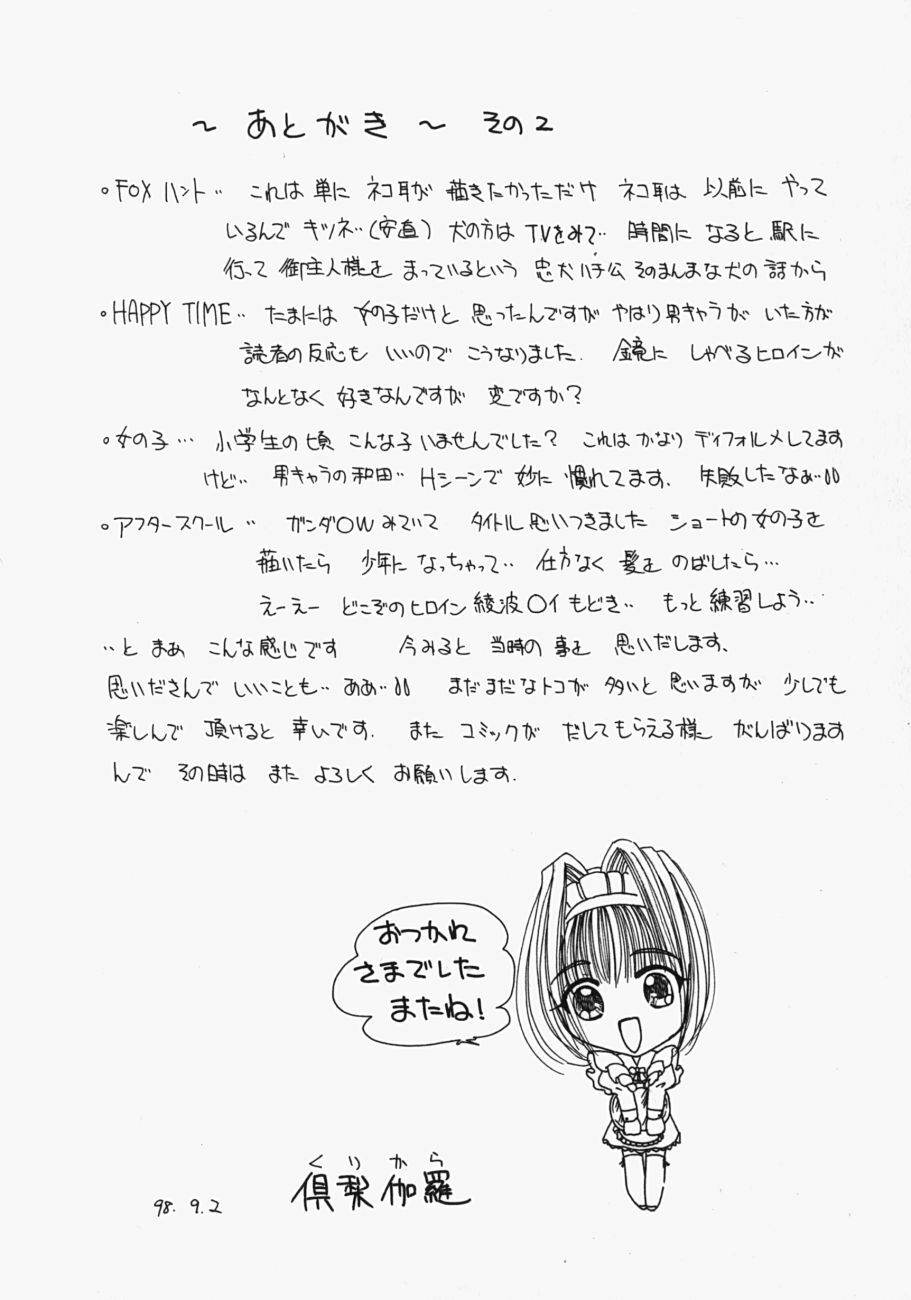 ～ あとがき ～ その2
・FOX ハント‥ これは 単に ネコ耳が 描きたかっただけ ネコ耳は 以前に やって
いるんで キツネ‥(安直) 犬の方は T.V.をみて‥ 時間に なると 駅に
行って 御主人様を まっているという 忠犬ハチ公 そのまんまな犬の話から
・HAPPY TIME‥ たまには 女の子だけと 思ったんですが やはり男キャラが いた方が
読者の反応も いいので こうなりました. 鏡に しゃべるヒロインが
なんとなく 好きなんですが 変ですか?
・女の子… 小学生の頃 こんな子いませんでした? これは かなり ディフォルメしてます
けど‥ 男キャラの和田‥ Hシーンで 妙に 慣れてます、 失敗したなぁ‥
・アフタースクール ‥ ガンダ○Wみていて タイトル思いつきました ショートの女の子を
描いたら 少年に なっちゃって‥ 仕方なく 髪を のばしたら…
えーえー どこぞのヒロイン綾波○イもどき‥ もっと練習しよう‥
‥と まぁ こんな感じです 今みると 当時の 事を 思いだします、
思いださんで いいことも‥ ああ‥ まだまだなトコが 多いと 思いますが 少しでも
楽しんで 頂けると 幸いです. また コミックが だしてもらえる様 がんばります
んで その時は また よろしく お願いします.
おつかれ
さまでした
またね!
くりから
倶梨伽羅
98. 9. 2